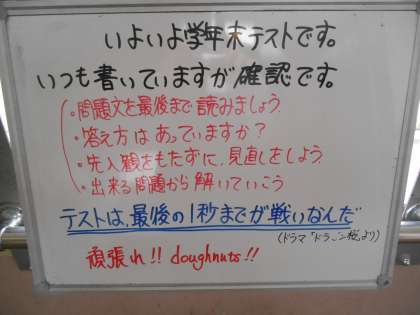 いよいよ学年末テストです。
いつも書いていますが確認です。
・問題文を最後まで読みましょう
・答え方はあっていますか？
・先入観をもたずに、見直しをしよう
・出来る問題から解いていこう
テストは、最後の1秒までが戦いなんだ
(ドラマ「ドラゴン桜」より)
頑張れ!! doughnuts!!